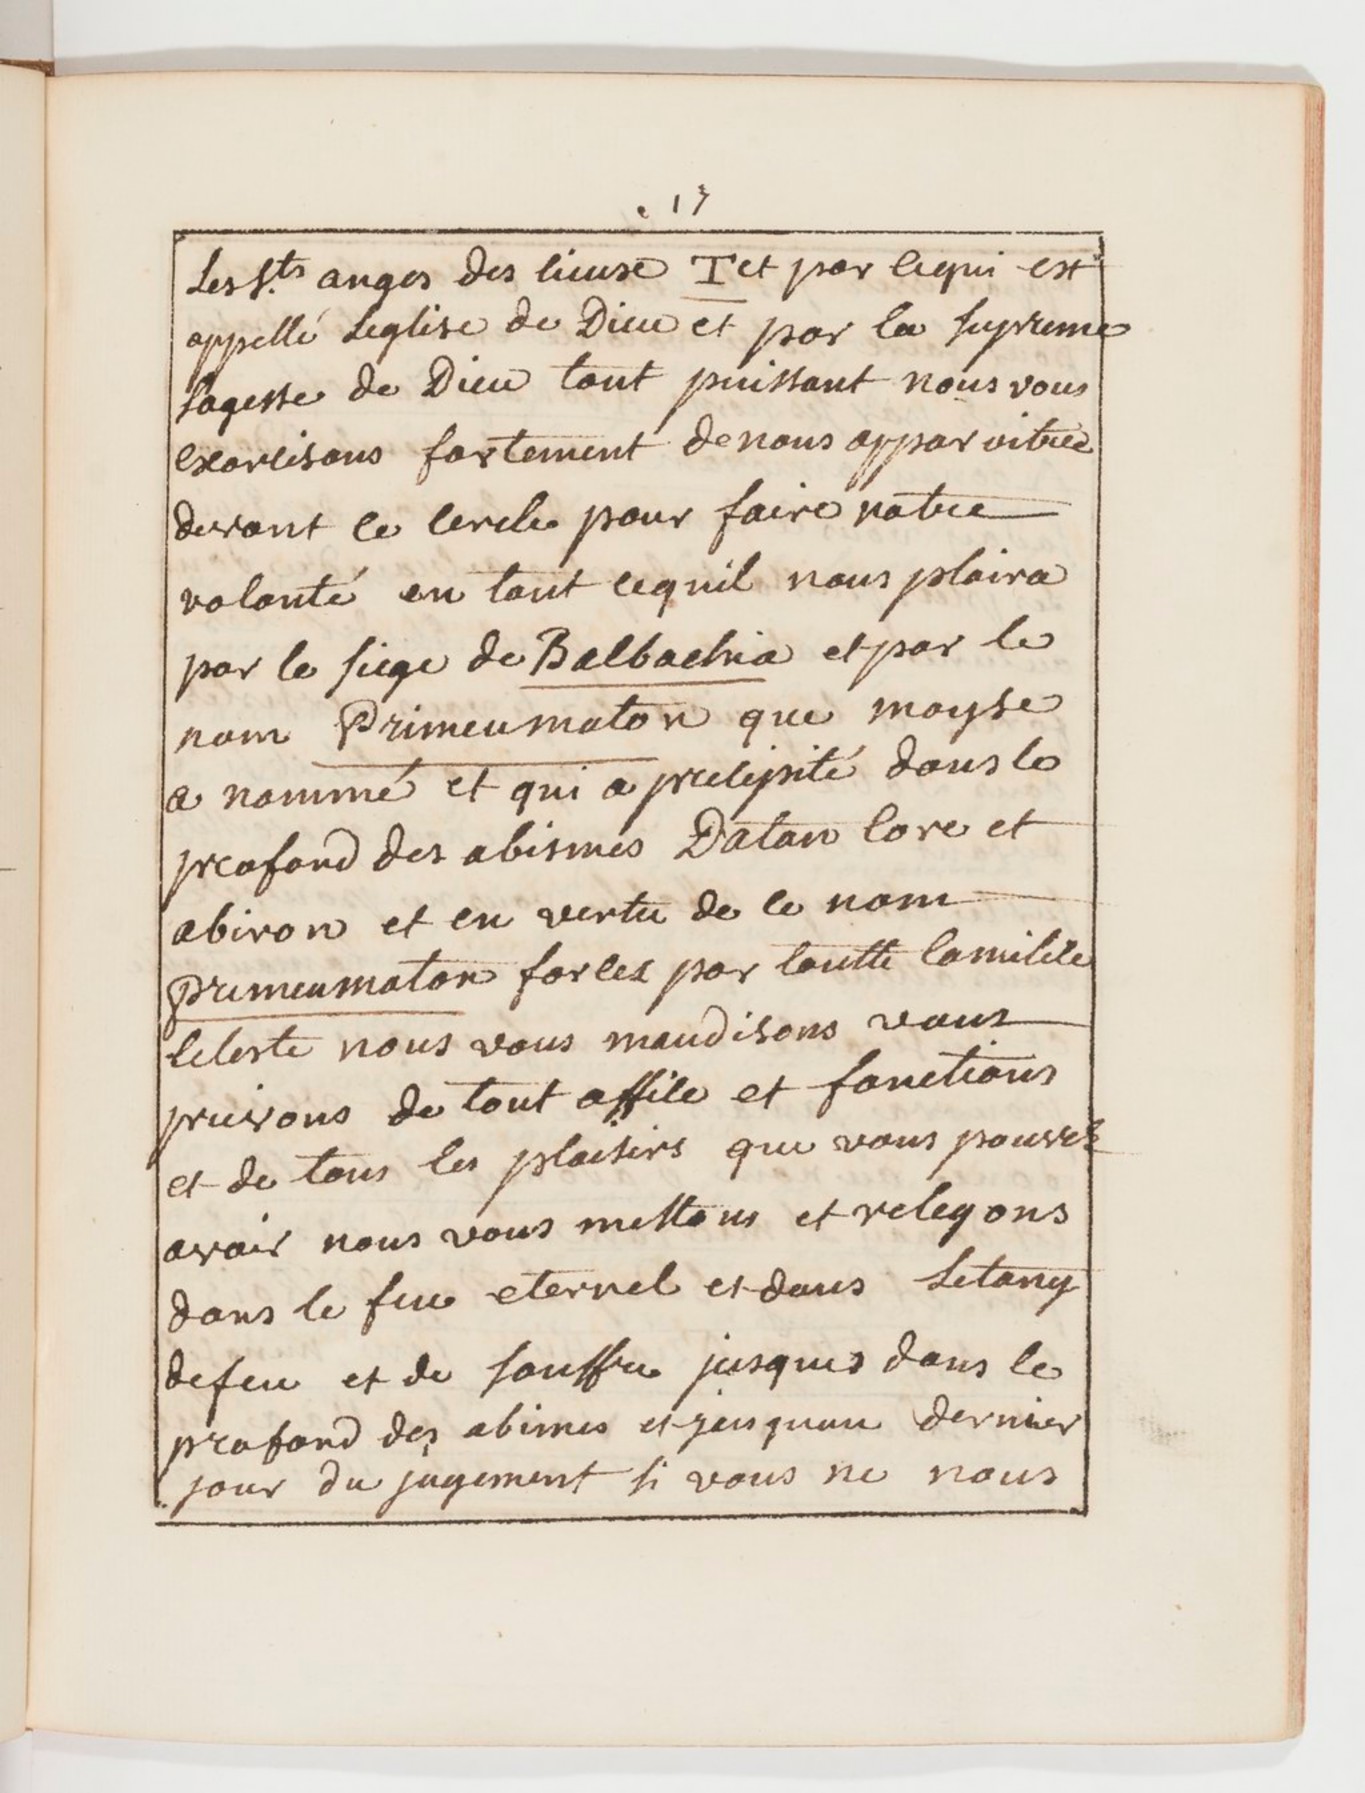 . 17
Les S.ts anges des cieuxe T et par ce qui est
appellé Leglise de Dieu et par la supreme
sagesse de Dieu tout puissant nous vous
exorcisons fortement de nous apparoitre
devant ce cercle pour faire notre
volonté en tout cequil nous plaira
par le siege de Balbachia et par le
nom Primeumaton que moyse
a nommé et qui a precipité dans le
profond des abismes Datan Core et
abiron et en vertu de ce nom
Primeumaton forces par toutte la milice
Celeste nous vous maudisons vous
privons de tout office et fonctions
et de tous les plaisirs que vous pouvez
avoir nous vous mettons et releguons
dans le feu eternel et dans Letang
de feu et de souffre jusques dans le
profond des abimes et jusquau dernier
jour du jugement si vous ne nous